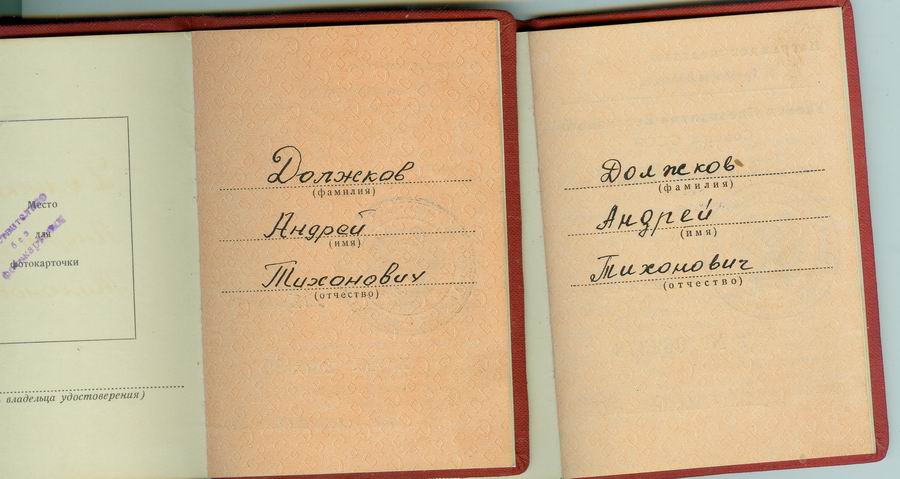 Место
для
фотокарточки
владельца удостоверения)
без
Должков
(фамилия)
Андрей
(имя)
Тихонович
(отчество)
Должков
(фамилия)
Андрей
(имя)
Тихонович
(отчество)